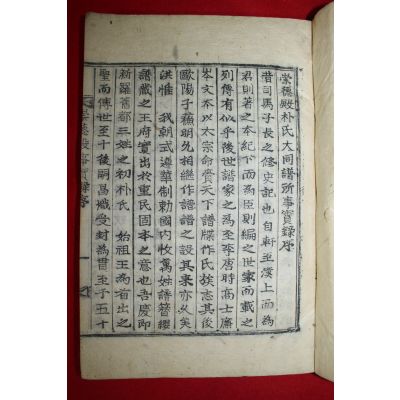 崇德殿朴氏大同譜所事實錄序
昔司馬子長之修史記也自軒至漢上而為
君則著之本紀下而為臣則編之世家而載之
列傳有以乎後世譜家之為至李唐時高士廉
岑文本以太宗命責天下譜牒作氏族志其後
歐陽子蘇明允相繼作譜譜之設其來亦久矣
洪惟 我朝式遵華制勅國內收萬姓譜簪纓
譜藏之王府實出於重民固本之意也吾慶即
新羅舊都三姓之初朴氏 始祖王為首出之
聖而傳世至十嗣昌
受封為貫至于五十
崇德殿事實錄序
一